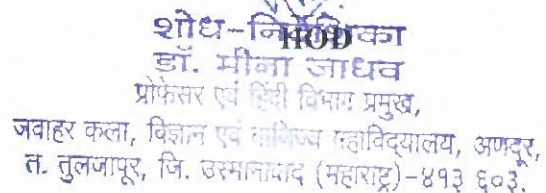 शोध-निर्देशिका
HOD
डॉ. मीना जाधव
प्रोफेसर एवं हिंदी विभाग प्रमुख,
जवाहर कला, विज्ञान एवं वाणिज्य महाविद्यालय, अणदूर,
त. तुलजापूर, जि. उस्मानाबाद (महाराष्ट्र)-४१३ ६०३.